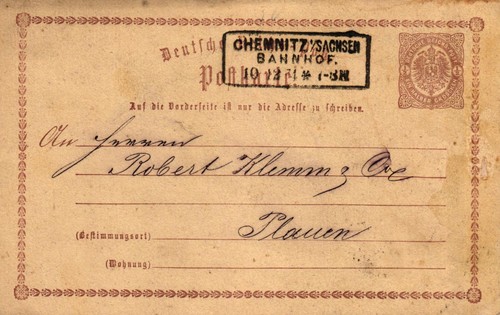 Deutsche
CHEMNITZ/SACHSEN
BAHNHOF.
Postkarte
Auf die Vorderseite ist nur die Adresse zu schreiben.
An Herren
Robert Klemm & Co
(Bestimmungsort) Plauen
(Wohnung)